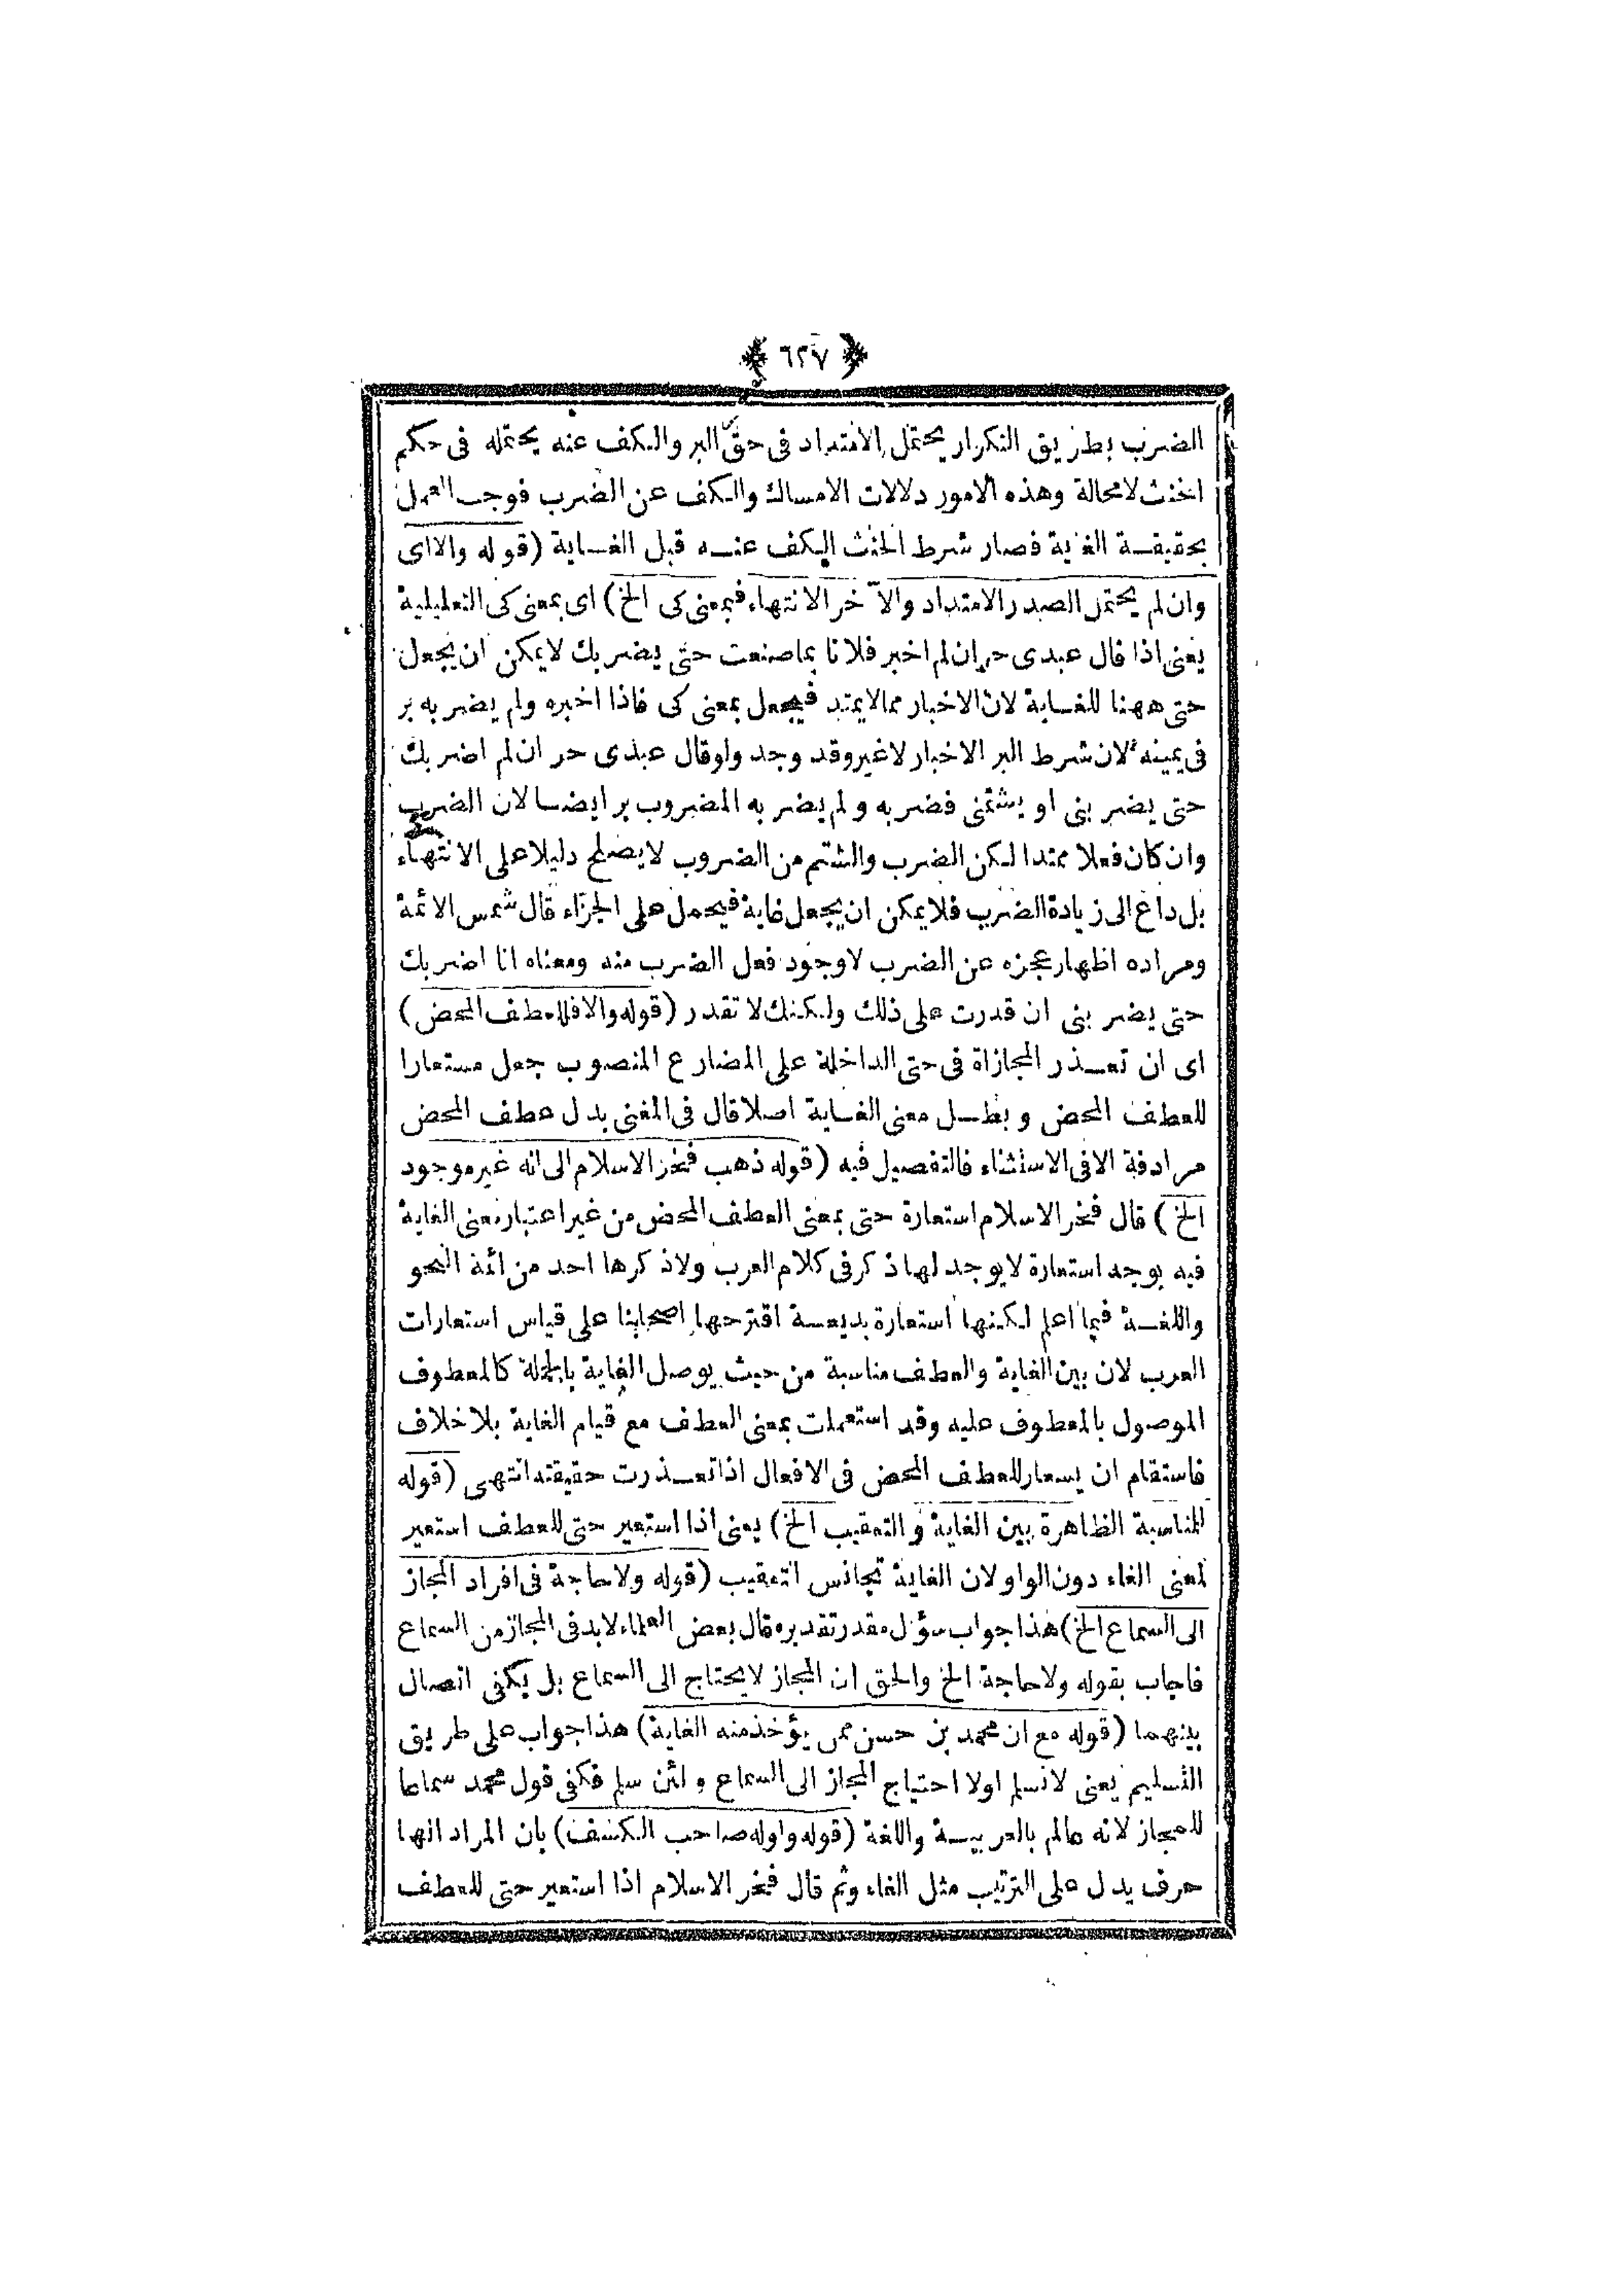 ﴿ ٦٢٧ ﴾
الضرب بطريق التكرار يحتمل الامتداد فى حق البر والكف عنه يحتمله فى حكم
الحنث لامحالة وهذه الامور دلالات الامساك والكف عن الضرب فوجب العمل
بحقيقة الغاية فصار شرط الحنث الكف عنه قبل الغاية (قوله والااى
وان لم يحتمل الصدر الامتداد والآخر الانتهاء فبمعنى كى الخ) اى بمعنى كى التعليلية
يعنى اذا قال عبدى حر ان لم اخبر فلانا بماصنعت حتى يضربك لايمكن ان يجعل
حتى ههنا للغاية لان الاخبار ممالايمتد فيجعل بمعنى كى فاذا اخبره ولم يضربه بر
فى يمينه لان شرط البر الاخبار لاغير وقد وجد ولوقال عبدى حر ان لم اضربك
حتى يضربنى او يشتمنى فضربه ولم يضربه المضروب بر ايضا لان الضرب
وان كان فعلا ممتدا لكن الضرب والشتم من الضروب لايصلح دليلا على الانتهاء
بل داع الى زيادة الضرب فلايمكن ان يجعل غاية فيحمل على الجزاء قال شمس الائمة
ومراده اظهار عجزه عن الضرب لاوجود فعل الضرب منه ومعناه انا اضربك
حتى يضربنى ان قدرت على ذلك ولكنك لا تقدر (قوله والافللعطف المحض)
اى ان تعذر المجازاة فى حتى الداخلة على المضارع المنصوب جعل مستعارا
للعطف المحض وبطل معنى الغاية اصلا قال فى المغنى بدل عطف المحض
مرادفة الافى الاستثناء فالتفصيل فيه (قوله ذهب فخر الاسلام الى انه غير موجود
الخ) قال فخر الاسلام استعارة حتى بمعنى العطف المحض من غير اعتبار معنى الغاية
فيه يوجد استعارة لايوجد لها ذكر فى كلام العرب ولاذكرها احد من ائمة النحو
واللغة فيما اعلم لكنها استعارة بديعة اقترحها اصحابنا على قياس استعارات
العرب لان بين الغاية والعطف مناسبة من حيث يوصل الغاية بالجملة كالمعطوف
الموصول بالمعطوف عليه وقد استعملت بمعنى العطف مع قيام الغاية بلا خلاف
فاستقام ان يسعار للعطف المحض فى الافعال اذا تعذرت حقيقته انتهى (قوله
للمناسبة الظاهرة بين الغاية والتعقيب الخ) يعنى اذا استعير حتى للعطف استعير
لمعنى الفاء دون الواو لان الغاية تجانس التعقيب (قوله ولاحاجة فى افراد المجاز
الى السماع الخ) هذا جواب سؤل مقدر تقديره قال بعض العلماء لابد فى المجاز من السماع
فاجاب بقوله ولاحاجة الخ والحق ان المجاز لايحتاج الى السماع بل يكفى اتصال
بينهما (قوله مع ان محمد بن حسن ممن يؤخذ منه الغاية) هذا جواب على طريق
التسليم يعنى لانسلم اولا احتياج المجاز الى السماع ولئن سلم فكفى قول محمد سماعا
للمجاز لانه عالم بالعربية واللغة (قوله واوله صاحب الكشف) بان المراد انها
حرف يدل على الترتيب مثل الفاء وثم قال فخر الاسلام اذا استعير حتى للعطف